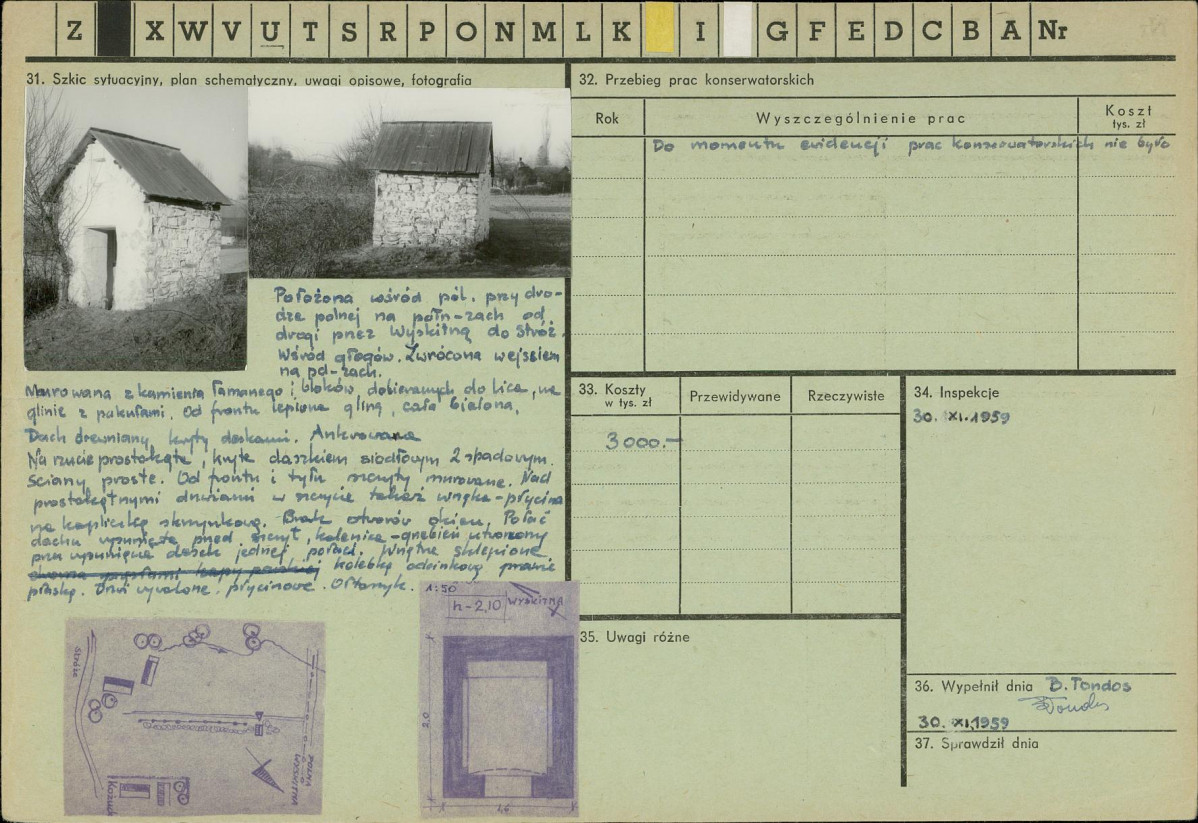 Z X W V U T S R P O N M L K I G F E D C B A Nr
31. Szkic sytuacyjny, plan schematyczny, uwagi opisowe, fotografia
Położona wśród pól, przy dro-
dze polnej na półn-zach od
drogi przez Wyskitną do Stróż.
Wśród głogów. Zwrócona wejściem
na pd-zach.
Murowana z kamienia łamanego i bloków dobieranych do lica, na
glinie z pakułami. Od frontu lepiona gliną, cała bielona.
Dach drewniany, kryty deskami. Ankrowana
Na rzucie prostokąta, kryte daszkiem siodłowym 2 spadowym.
Ściany proste. Od frontu i tyłu szczyty murowane. Nad
prostokątnymi drzwiami w szczycie takaż wnęka-płycina
na kapliczkę skrzynkową. Brak otworów okien. Połać
dachu wysunięta przed szczyt, kalenica-grzebień utworzony
przez wysunięcie desek jednej połaci. Wnętrze sklepione
kolebką odcinkową prawie
płaską. Drzwi wyvalone, płycinowe. Ołtarzyk.
Stróże
POLNA
WYSKITNA
Kożuch
1:50
h-2,10
WYSKITNA
2,0
1,6
32. Przebieg prac konserwatorskich
Rok
Wyszczególnienie prac
Koszt
tys. zł
Do momentu ewidencji prac konserwatorskich nie było
33. Koszty
w tys. zł
Przewidywane
Rzeczywiste
3000.-
34. Inspekcje
30. XI. 1959
35. Uwagi różne
36. Wypełnił dnia B. Tondos
BTondos
30. XI. 1959
37. Sprawdził dnia